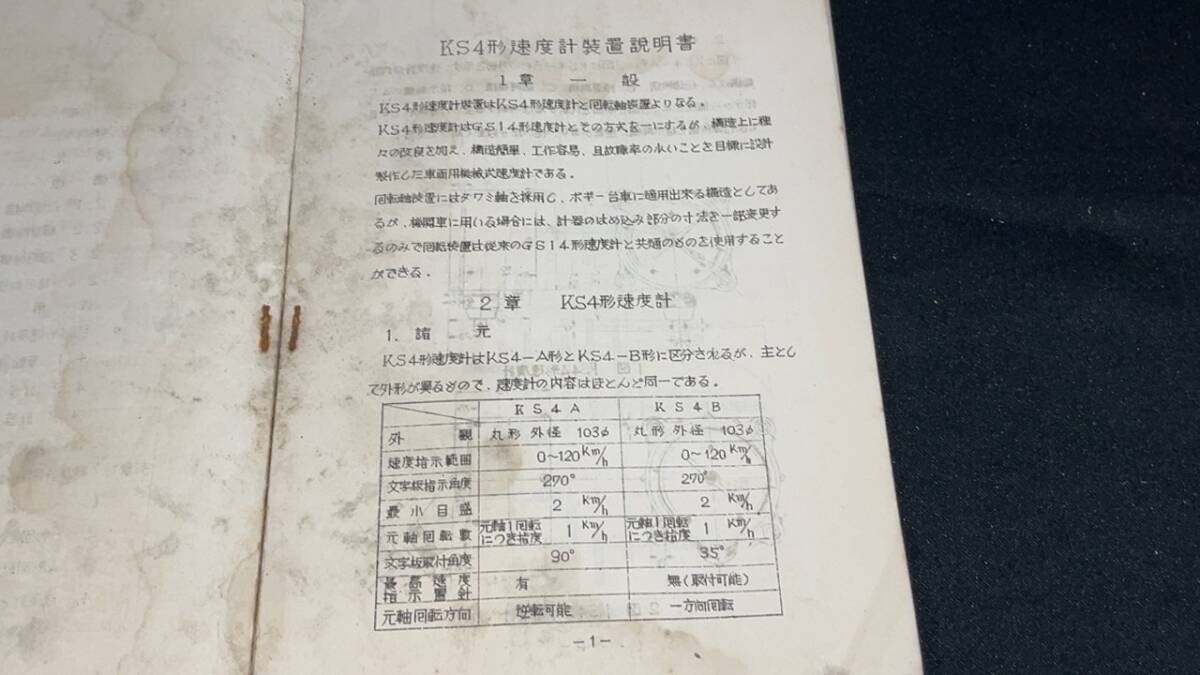 KS4形速度計装置説明書
1章 一 般
KS4形速度計装置はKS4形速度計と回転軸装置よりなる。
KS4形速度計はGS14形速度計とその方式を一にするが、構造上に種
々の改良を加え、構造簡単、工作容易、且故障率の少いことを目標に設計
製作した車両用機械式速度計である。
回転軸装置にはタワミ軸を採用し、ボギー台車に適用出来る構造としてあ
るが、機関車に用いる場合には、計器のはめ込み部分の寸法を一部変更す
るのみで回転装置は従来のGS14形速度計と共通のものを使用すること
ができる。
2章 KS4形速度計
1. 諸 元
KS4形速度計はKS4-A形とKS4-B形に区分されるが、主とし
て外形が異るもので、速度計の内容はほとんど同一である。
KS4A KS4B
外観 丸形 外径 103φ 丸形 外径 103φ
速度指示範囲 0~120 Km/h 0~120 Km/h
文字板指示角度 270° 270°
最小目盛 2 Km/h 2 Km/h
元軸回転数 元軸1回転につき 1 Km/h 元軸1回転につき 1 Km/h
文字板取付角度 90° 35°
最高速度指示置針 有 無(取付可能)
元軸回転方向 逆転可能 一方向回転
-1-